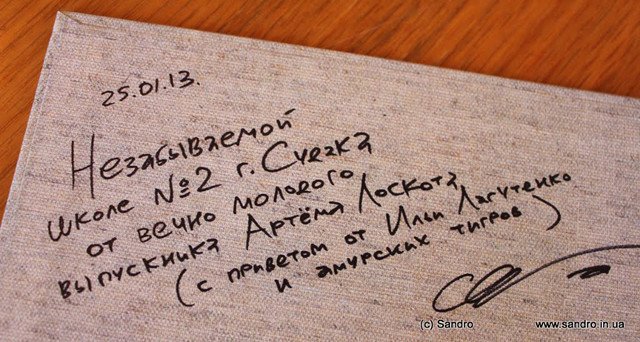 25.01.13.
Незабываемой
школе №2 г. Судака
от вечно молодого
выпускника Артёма Лоскота
(с приветом от Ильи Лагутенко
и амурских тигров)
(c) Sandro www.sandro.in.ua